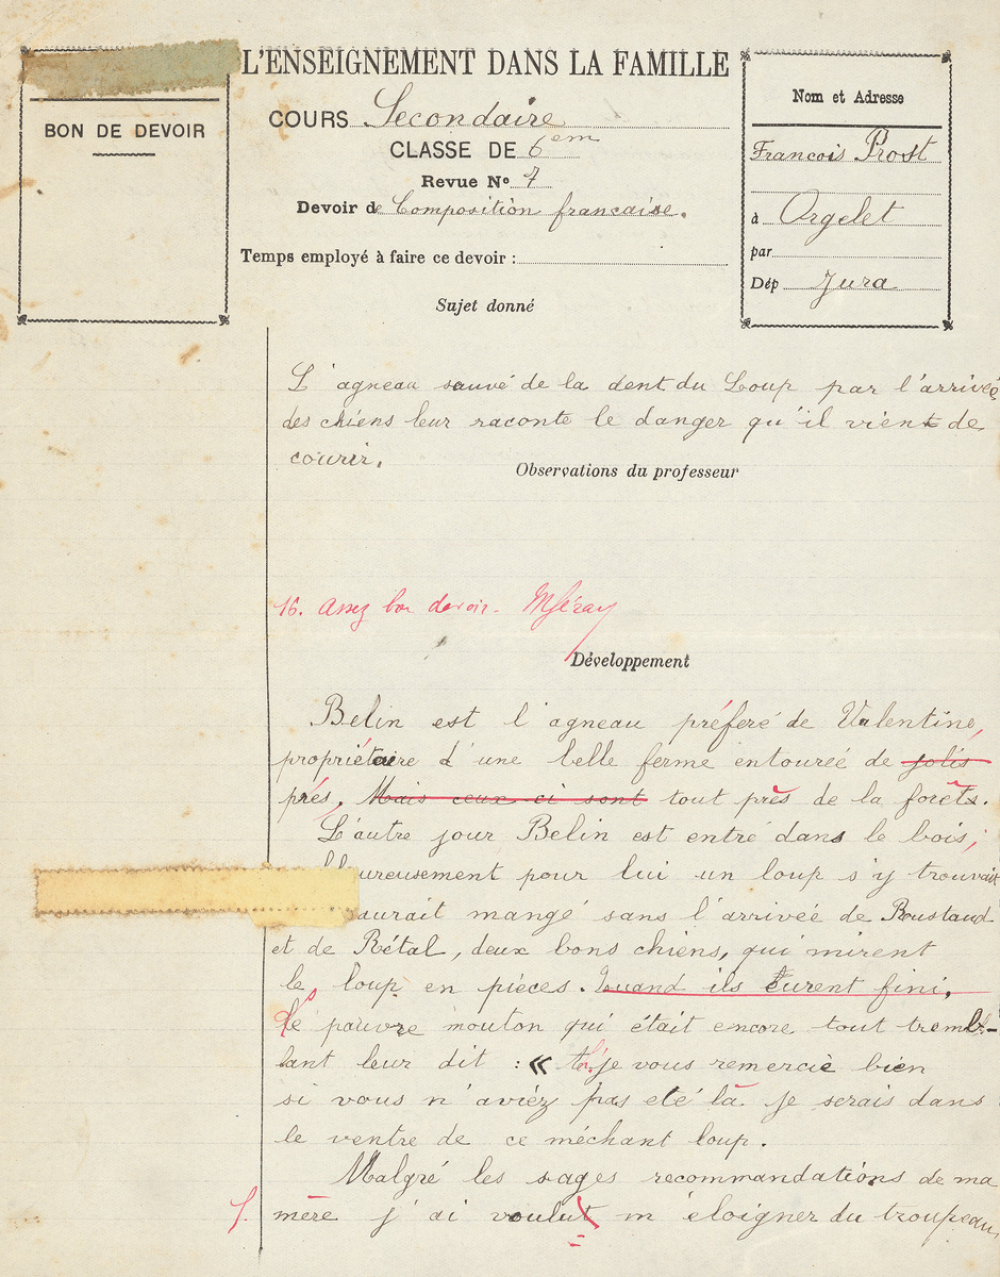 L'ENSEIGNEMENT DANS LA FAMILLE
BON DE DEVOIR
COURS Secondaire
CLASSE DE 6em
Revue No 7
Devoir de Composition francaise.
Temps employé à faire ce devoir :
Nom et Adresse
Francois Prost
à Orgelet
par
Dép Jura
Sujet donné
L'agneau sauvé de la dent du Loup par l'arrivée
des chiens leur raconte le danger qu'il vient de
courir.
Observations du professeur
16. assez bon devoir.
Développement
Belin est l'agneau préferé de Valentine,
propriétaire d'une belle ferme entourée de jolis
prés. Mais ceux ci sont tout près de la forêts.
L'autre jour Belin est entré dans le bois,
heureusement pour lui un loup s'y trouvait
aurait mangé sans l'arrivée de Roustaud
et de Rétal, deux bons chiens, qui mirent
le loup en pièces. Quand ils eurent fini,
le pauvre mouton qui était encore tout tremb-
lant leur dit : « je vous remercie bien
si vous n'aviez pas eté là je serais dans
le ventre de ce méchant loup.
Malgré les sages recommandations de ma
mère j'ai voulut m'éloigner du troupeau,